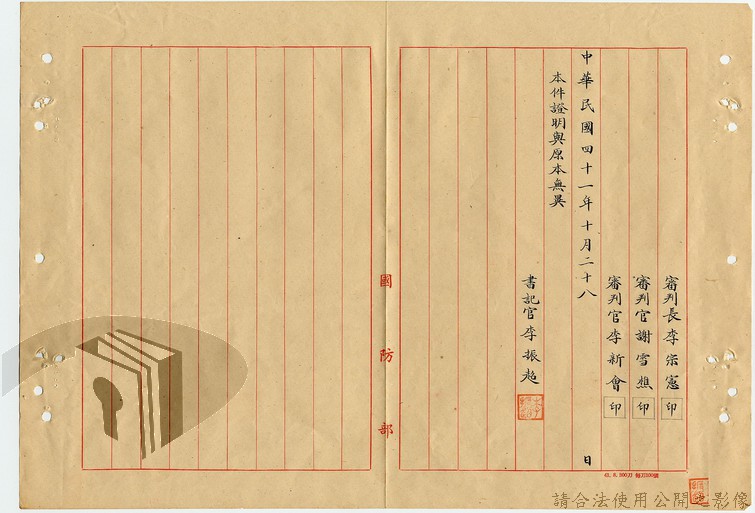 審判長李宗憲印
審判官謝雪樵印
審判官李新會印
中華民國四十一年十月二十八日
本件證明與原本無異
書記官李振超
國防部
請合法使用公開之影像